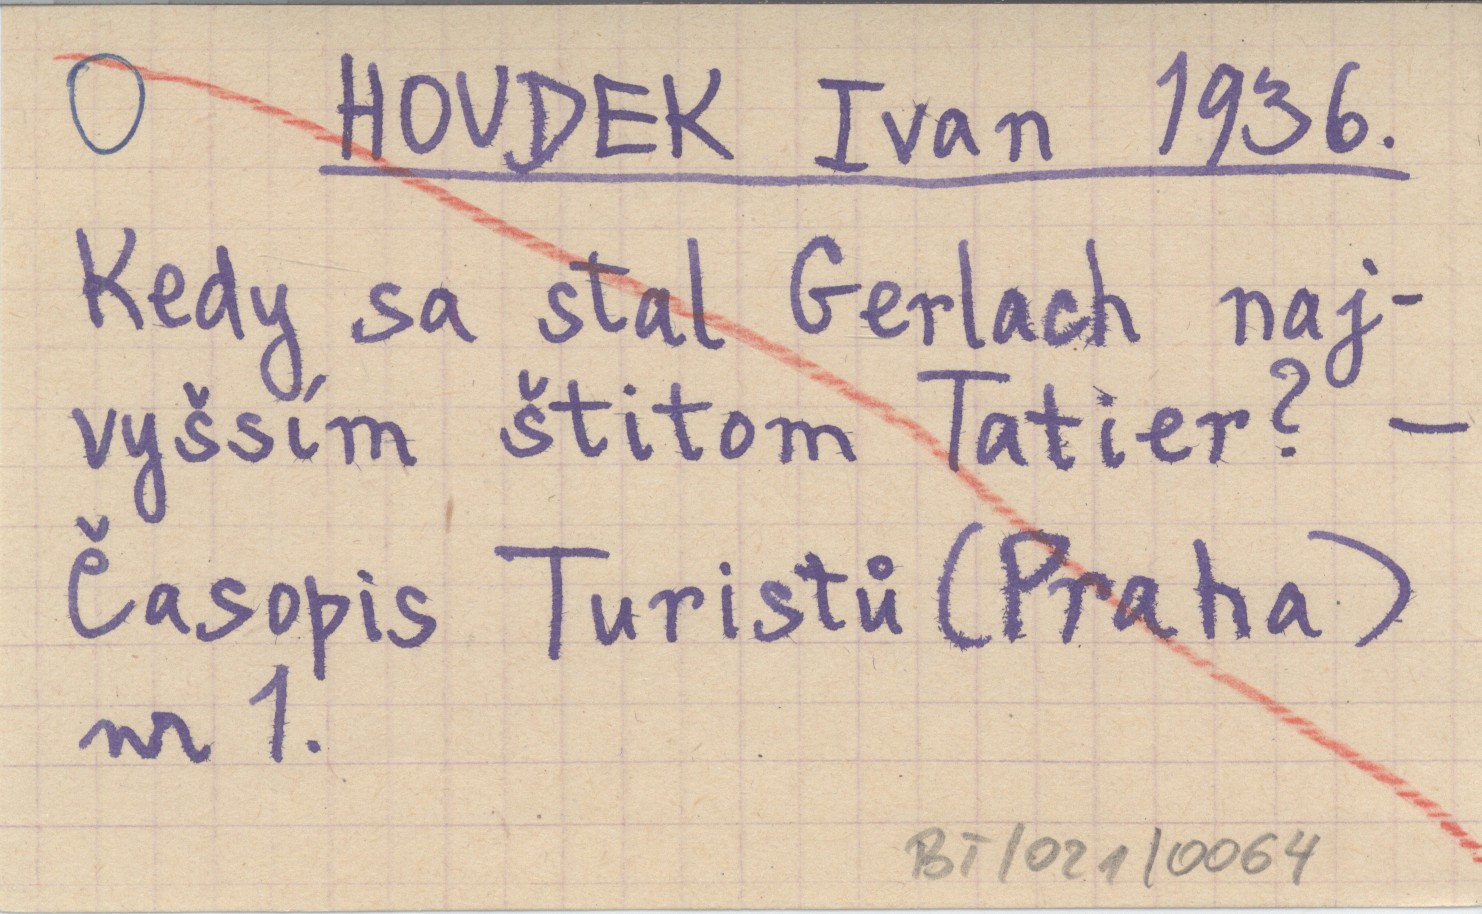 O HOUDEK Ivan 1936.
Kedy sa stal Gerlach naj-
vyšším štitom Tatier? –
Časopis Turistů (Praha)
nr 1.
BT/021/0064